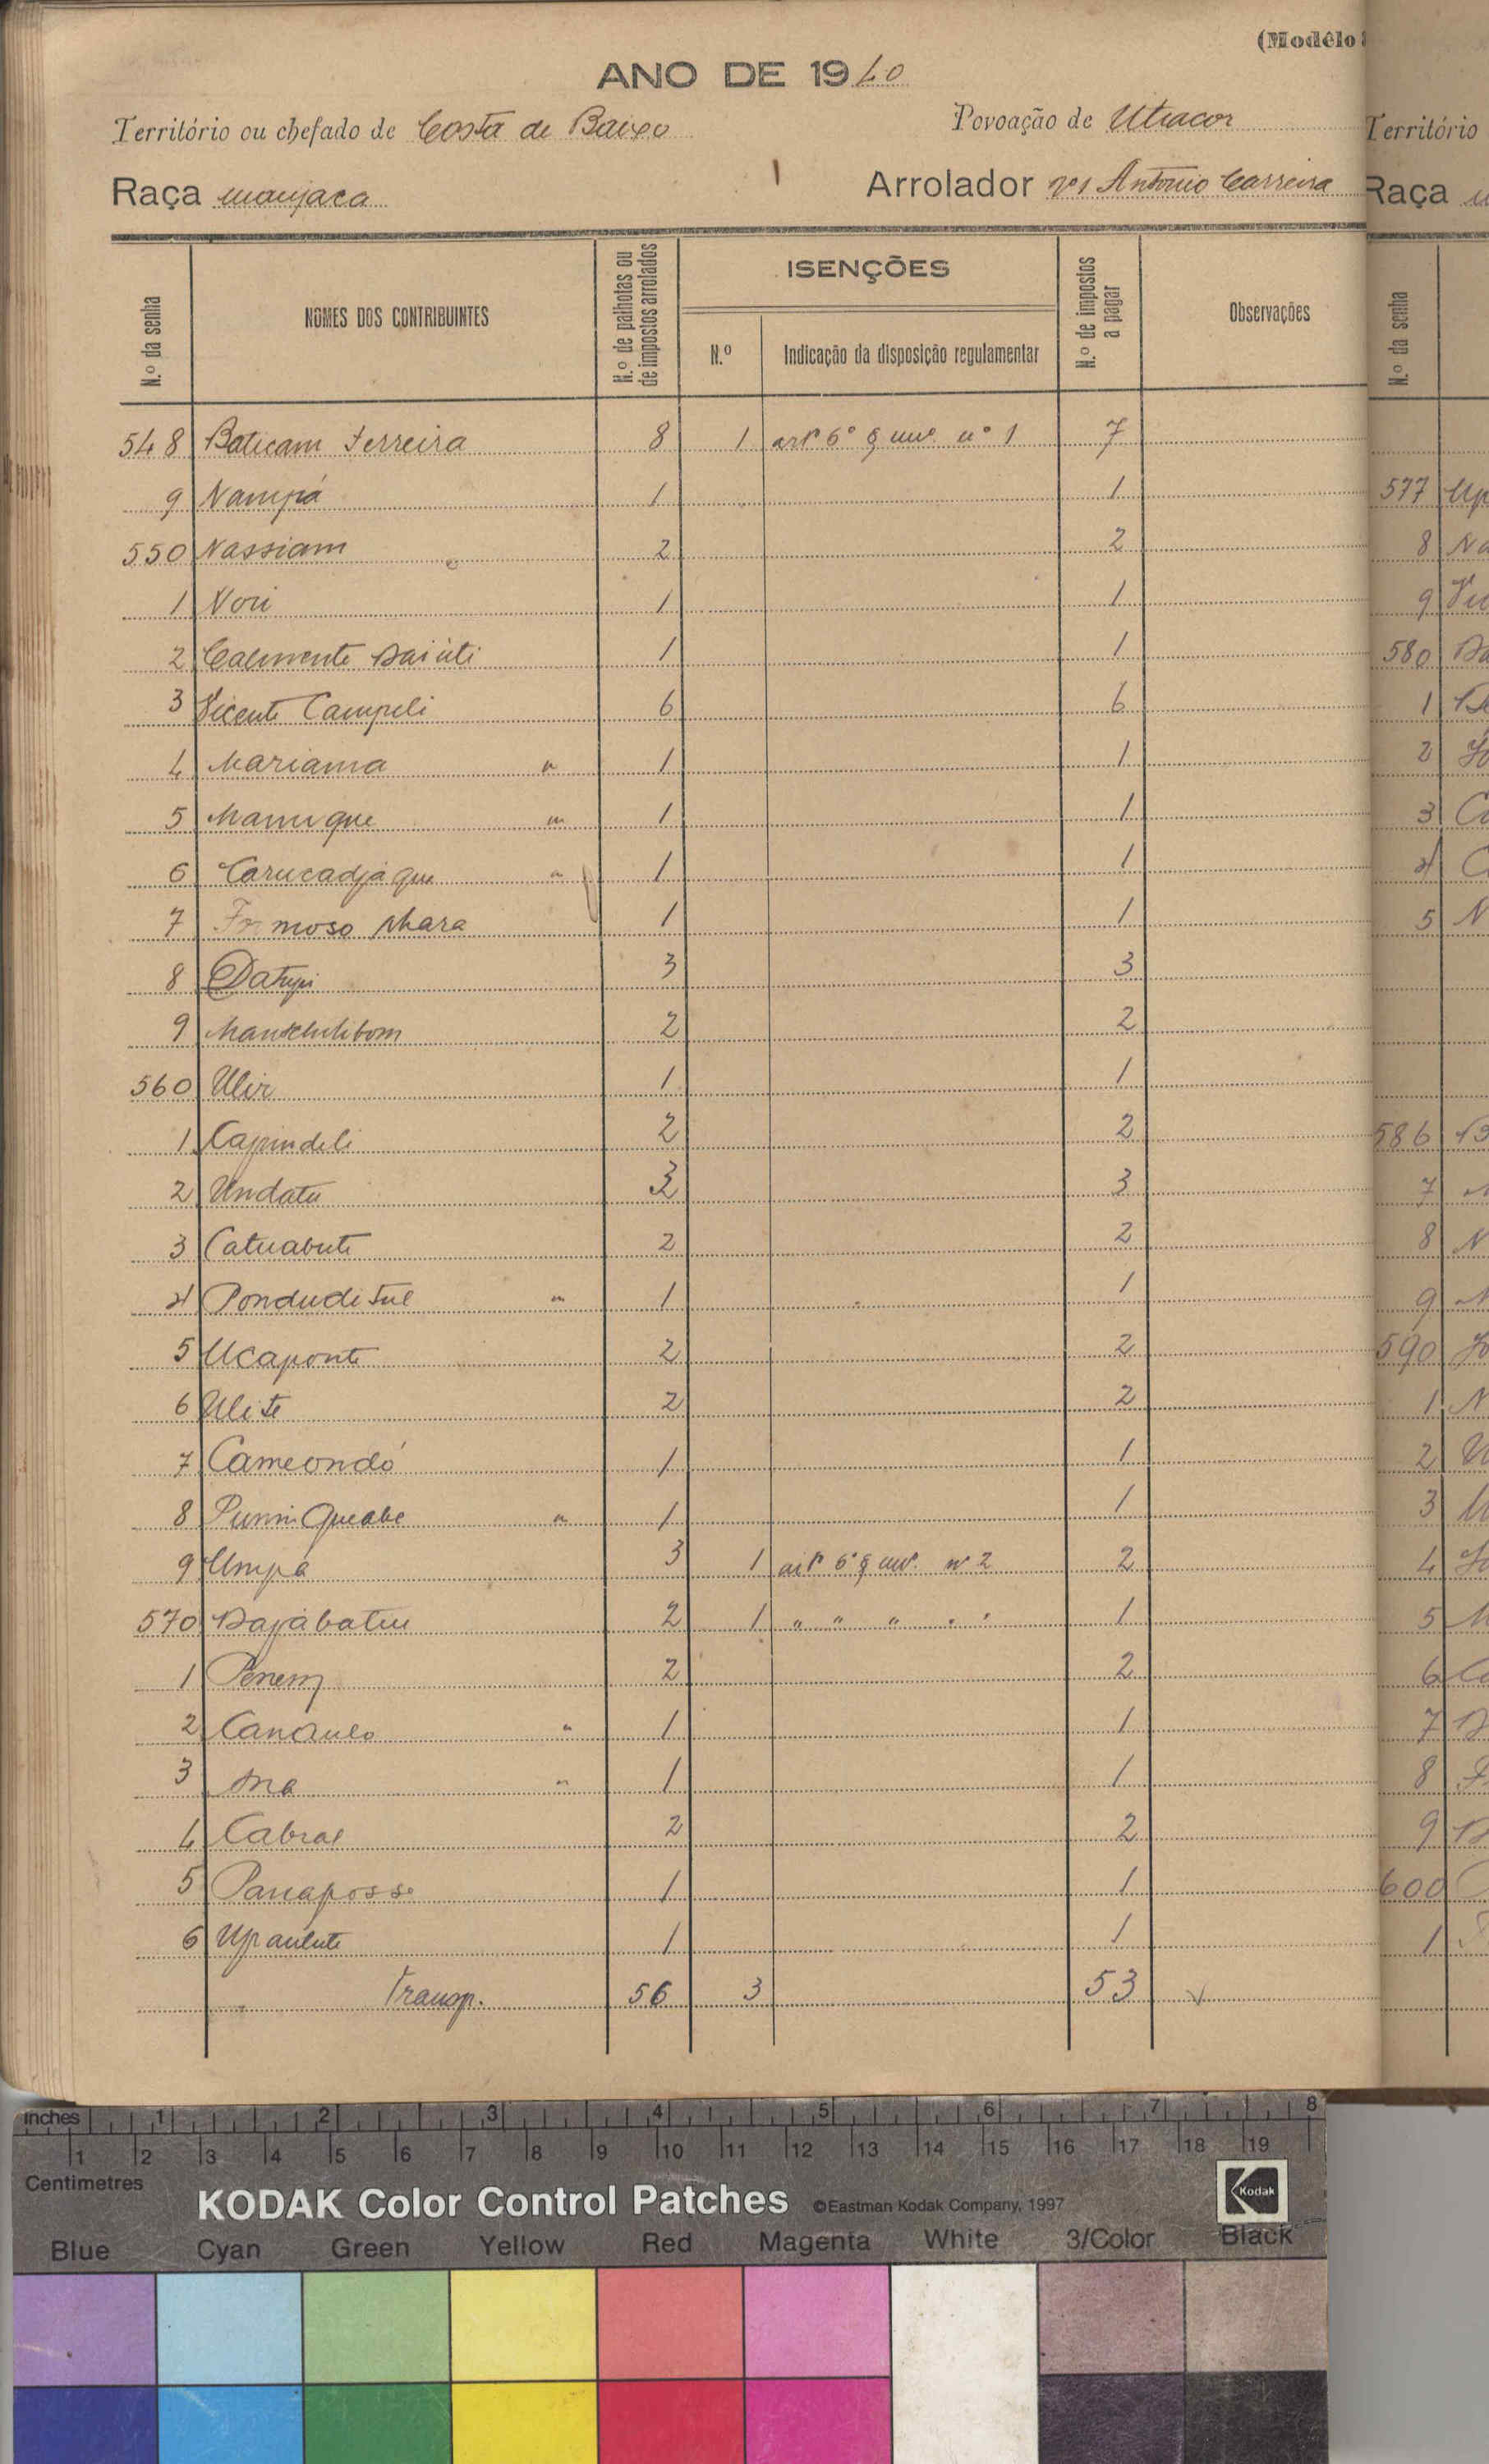 (Modêlo
ANO DE 1940
Território ou chefado de Costa de Baixo
Povoação de Utiacor
Raça manjaca
Arrolador nº1 António Carreira
N.º da senha
NOMES DOS CONTRIBUINTES
N.º de palhotas ou de impostos arrolados
ISENÇÕES
N.º
Indicação da disposição regulamentar
N.º de impostos a pagar
Observações
548 Baticam Ferreira 8 1 artº 6º § unº nº 1 7
9 Nampá 1 1
550 Nassiam 2 2
1 Nori 1 1
2 1 1
3 Vicente Campeli 6 6
4 Mariama " 1 1
5 Manuque " 1 1
6 Carucadjaque " 1 1
7 Formoso Nhara 1 1
8 Datupi 3 3
9 2 2
560 Ulir 1 1
1 Capindeli 2 2
2 Undatu 3 3
3 Catuabute 2 2
4 1 1
5 Ucaponte 2 2
6 Ulite 2 2
7 Cameondó 1 1
8 " 1 1
9 Umpá 3 1 artº 6º § unº nº 2 2
570 2 1 " " " " " 1
1 Penem 2 2
2 Canaulo " 1 1
3 Ana " 1 1
4 Cabral 2 2
5 Panaposse 1 1
6 Upaulute 1 1
Transp. 56 3 53
Território
Raça
N.º da senha
577
8
9
580
1
2
3
4
5
586
7
8
9
590
1
2
3
4
5
6
7
8
9
600
1
inches 1 2 3 4 5 6 7 8
1 2 3 4 5 6 7 8 9 10 11 12 13 14 15 16 17 18 19
Centimetres
KODAK Color Control Patches ©Eastman Kodak Company, 1997 Kodak
Blue Cyan Green Yellow Red Magenta White 3/Color Black